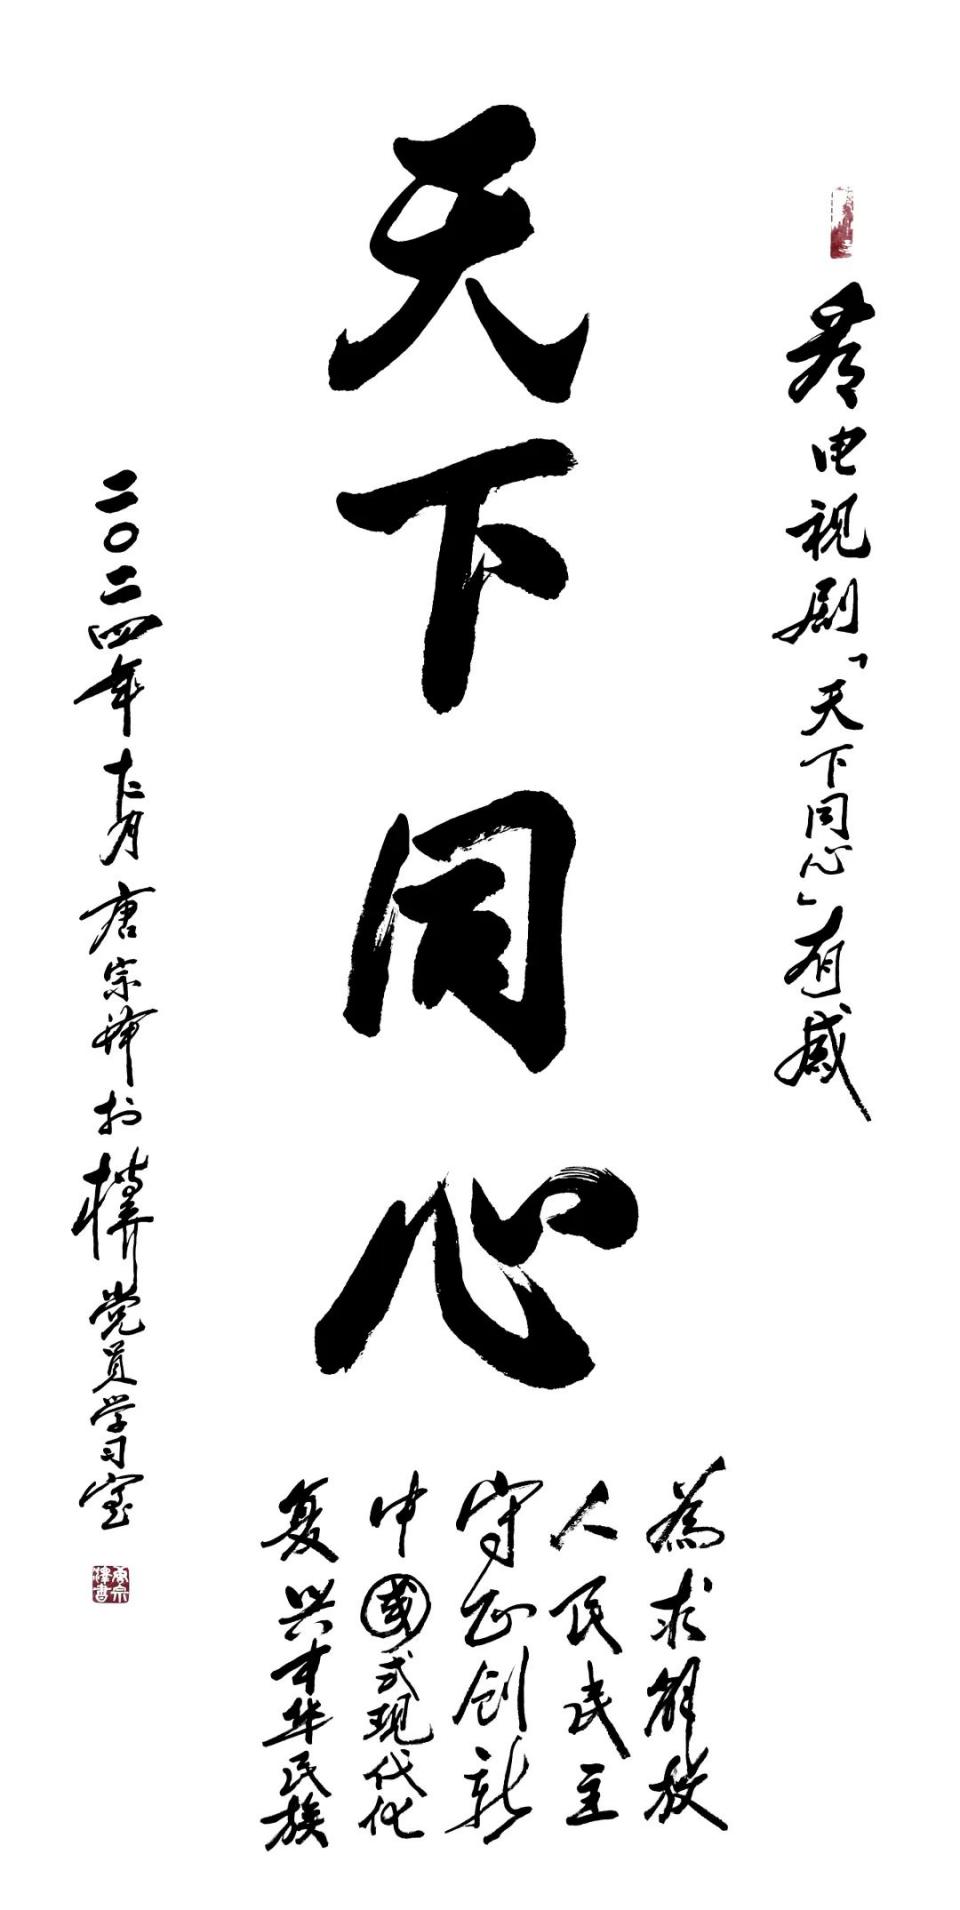 看电视剧「天下同心」有感
天下同心
为求解放
人民民主
守正创新
中國式现代化
复兴中华民族
二〇二四年十二月唐宗择於 党员学习室